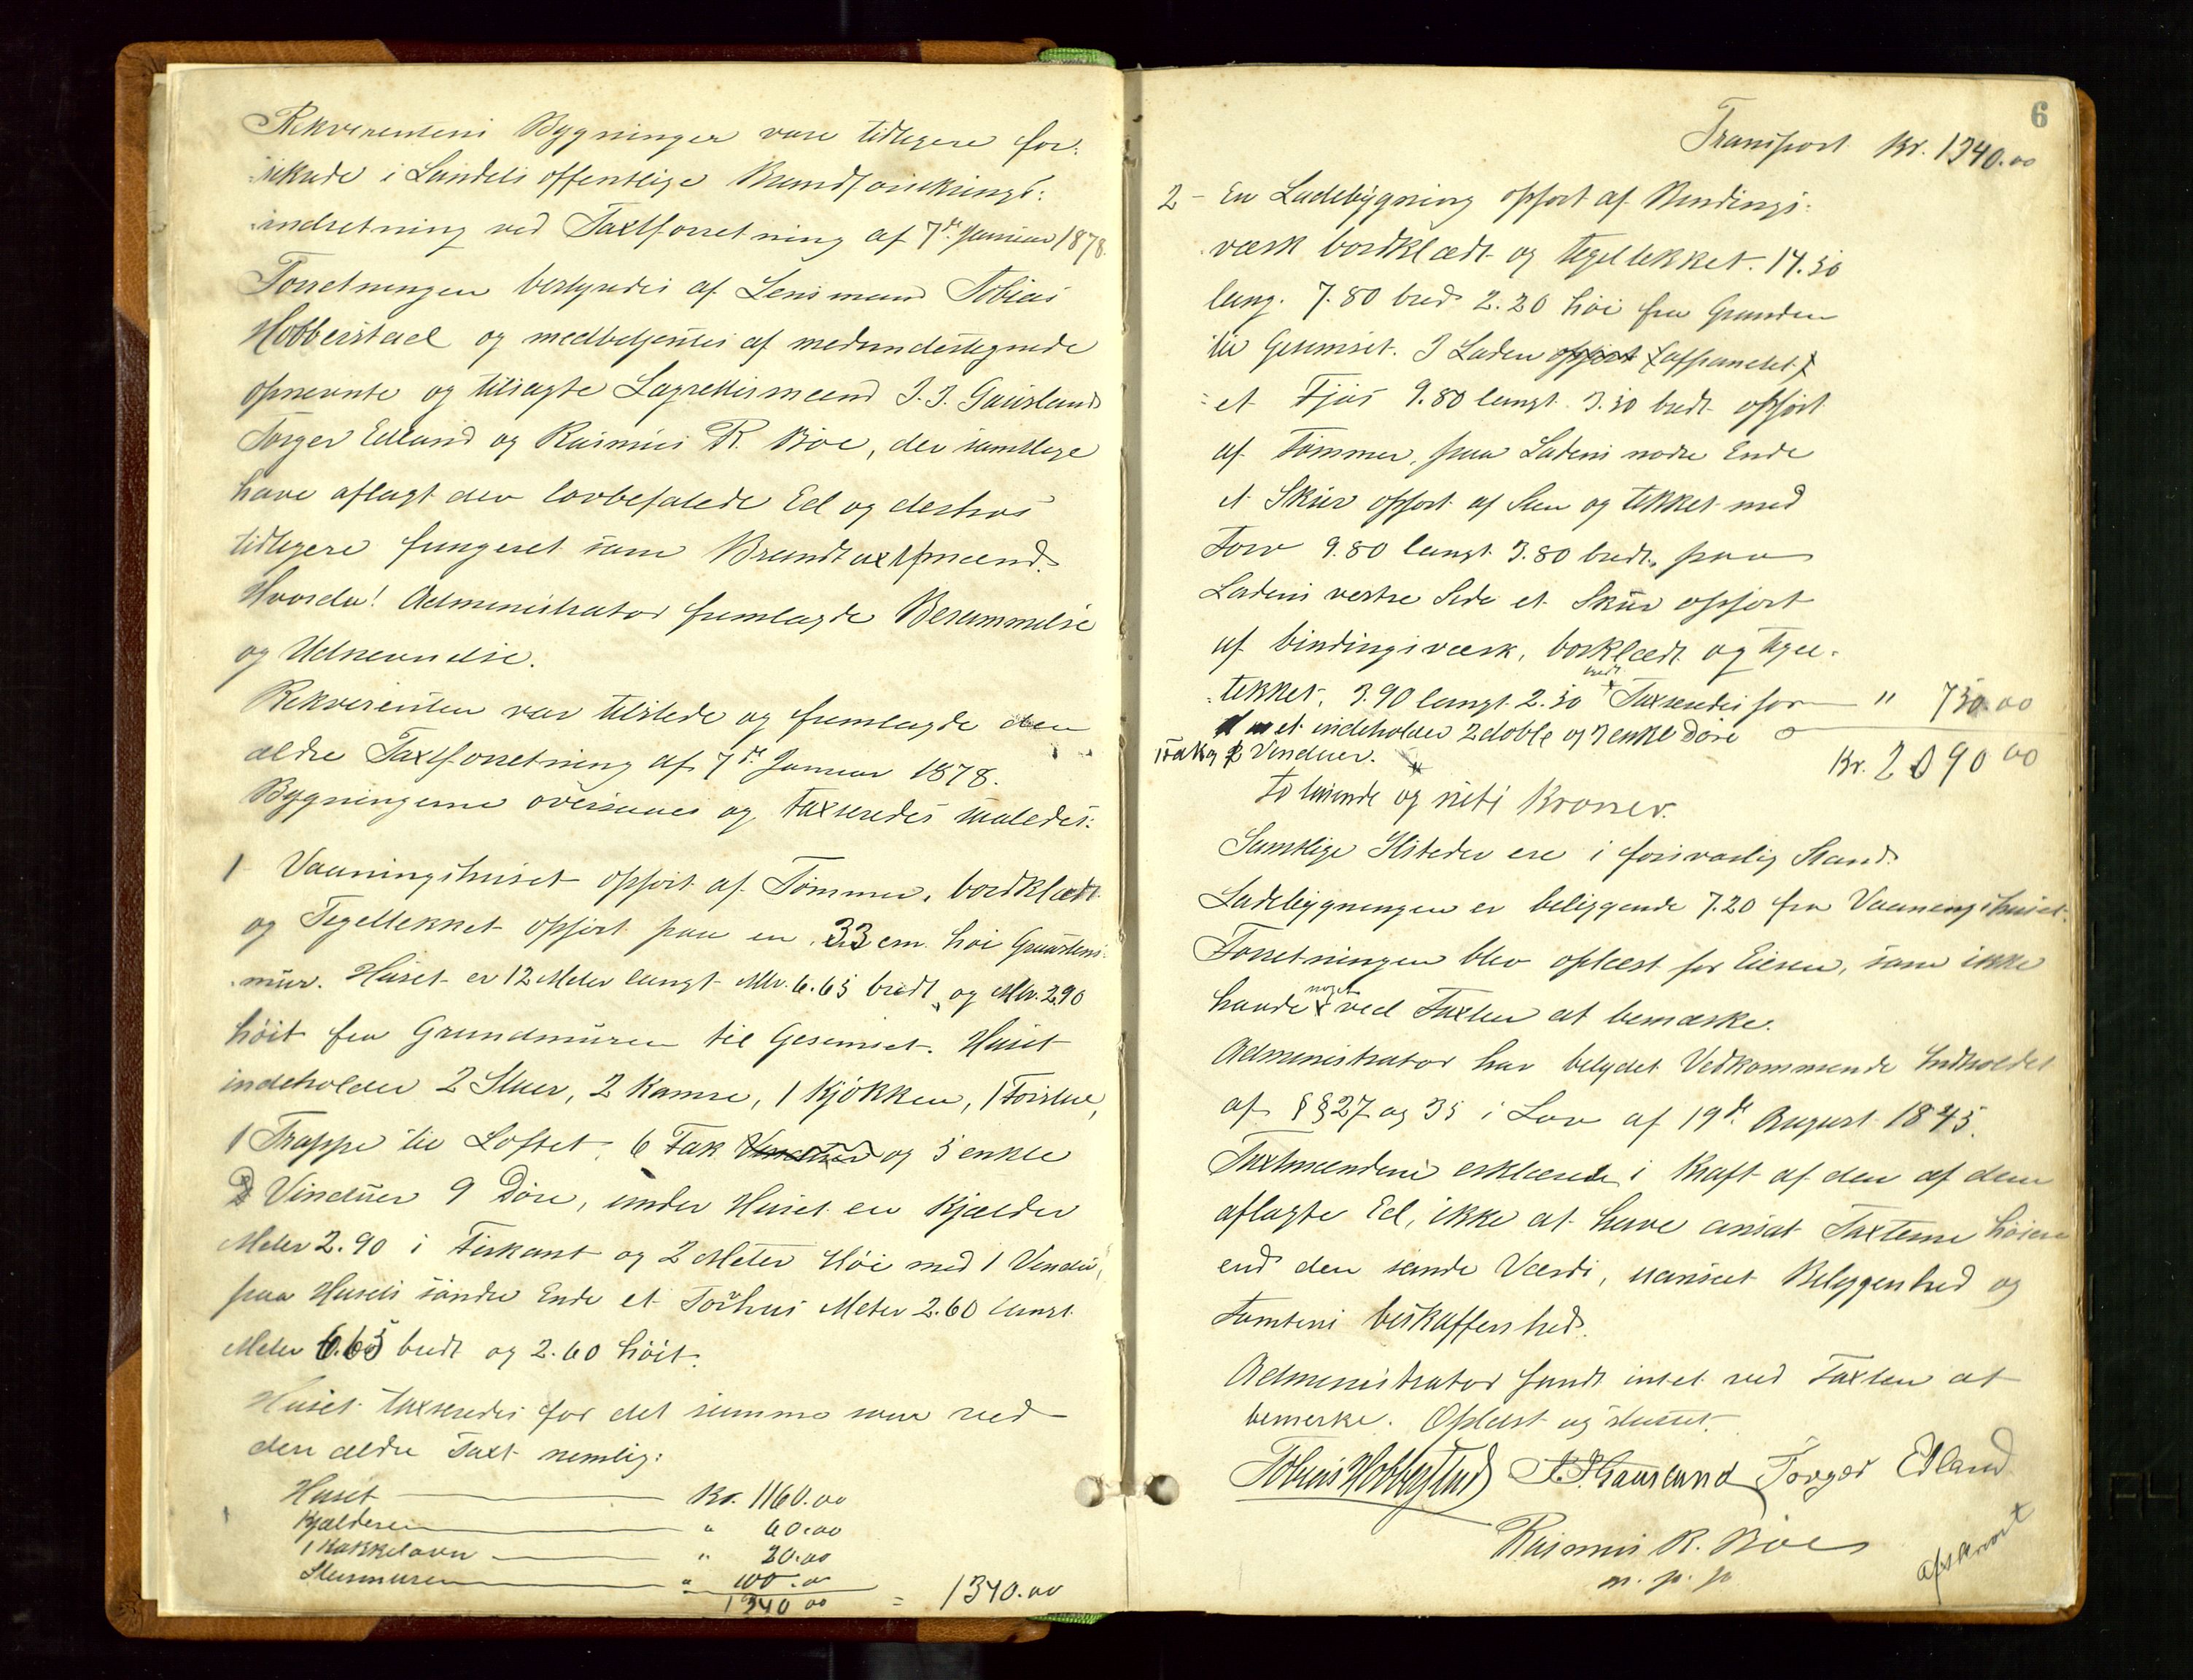 Rekvirentens Bygninger vare tidligere for-
sikrede i Landets offentlige Brandforsikrings-
indretning ved Taxtforretning af 7de Januar 1878.
Forretningen bestyredes af Lensmand Tobias
Hobberstad og medbetjentes af medundertegnede
opnevnte og tilsagte Lagrettesmænd J. J. Gausland
Torger Edland og Rasmus R. Boe, der samtlige
have aflagt den lovbefalede Ed og deshos
tidligere fungeret som Brandtaxtmænd.
Hvorda! Administrator fremlagde Berammelse
og Udnævnelse.
Rekvirenten var tilstede og fremlagde den
ældre Taxtforretning af 7de Januar 1878.
Bygningerne overсaaes og taxseredes saaledes:
1 Vaaningshuset opført af Tømmer, bordklædt
og Tegeltekket opført paa en 33 cm. høi Graastens-
mur. Huset er 12 Meter langt Mtr. 6.65 bredt og Mtr. 2.90
høit fra Grundmuren til Gesimset. Huset
indeholder 2 Stuer, 2 Kamre, 1 Kjøkken, 1 Forstue,
1 Trappe til Loftet, 6 Fak Vinduer og 5 enkle
Vinduer 9 Døre, under Huset en Kjælder
Meter 2.90 i Firkant og 2 Meter Høi med 1 Vindu,
paa Husets søndre Ende et Torvhus Meter 2.60 langt
Meter 6.65 bredt og 2.60 høit.
Huset taxseredes for det samme som ved
den ældre Taxt nemlig:
Huset Kr. 1160.00
Kjælderen " 60.00
1 Kakkelovn " 20.00
Stenmuren " 100.00
1340 00 = 1340.00
6
Transport Kr. 1340.00
2 - En Ladebygning opført af Bindings-
værk bordklædt og tegeltekket. 14.50
lang. 7.80 bred 2.20 høi fra Grunden
til Gesimset. I Laden opført (afpanelet)
et Fjøs 9.80 langt 3.50 bredt opført
af Tømmer, paa Ladens nordre Ende
et Skur opført af Sten og tekket med
Torv 9.80 langt 3.80 bredt, paa
Ladens vestre Side et Skur opført
af bindingsværk, bordklædt og tegel-
tekket, 3.90 langt 2.50 bredt Taxseredes for " 750.00
et indeholder 2 doble og 7 enkle Døre
Fak Vinduer. Kr. 2090 00
to tusende og nitti Kroner.
Samtlige Ildsteder ere i forsvarlig Stand.
Ladebygningen er beliggende 7.20 fra Vaaningshuset.
Forretningen blev oplæst for Eieren, som ikke
havde noget ved Taxten at bemærke.
Administrator har betydet Vedkommende Indholdet
af §§ 27 og 35 i Lov af 19de August 1845.
Taxtmændene erklærede i Kraft af den af dem
aflagte Ed, ikke at have ansat Taxterne høiere
end den sande Værdi, uanset Beliggenhed og
Tomtens beskaffenhed.
Administrator fandt intet ved Taxten at
bemerke. Oplæst og sluttet.
Tobias Hobberstad J. J. Gausland Torger Edland
Rasmus R. Boe
m. p. p
afskrevet